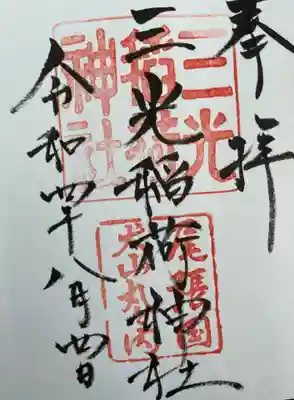 奉拝
三光稲荷神社
令和四年八月四日
三光
稲荷
神社
尾張国
犬山丸内